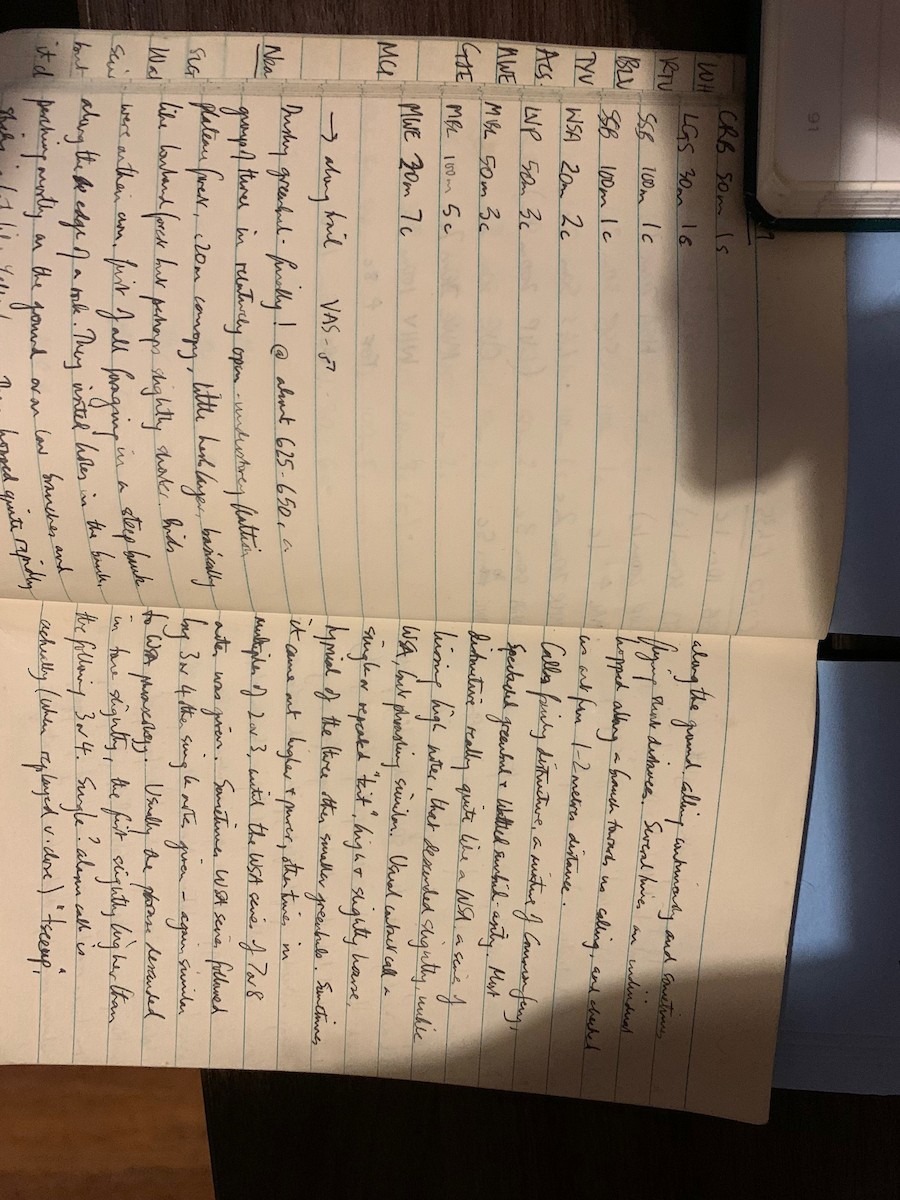 91
WH
RTV
BLV
TYV
ACS.
MWE
GTE
MCG
Nea
SLG
CRB 50m 1s
LGS 30m 1s
SSB 100m 1c
SSB 100m 1c
WSA 20m 2c
LVP 50m 3c
MBL 50m 3c
MBL 100m 5c
MWE 20m 7c
→ along trail VAS - ♂
Dusky greenbul - finally! @ about 625-650, a
group of three in relatively open-understorey
plateau forest, c20m canopy, little herb layer, basically
like lowland forest but perhaps slightly shorter. birds
were on their own, first of all foraging in a steep bank
along the edge of a track. They visited holes in the bank,
perching mostly on the ground or on low branches and
hopped quite rapidly
along the ground, calling continuously and sometimes
flying short distances. Several times an individual
hopped along a branch towards us calling, and checked
us out from 1-2 metres distance.
Calls fairly distinctive, a mixture of Common fiery,
Spectacled greenbul & Wattled sunbird-asity. Most
distinctive really quite like a WSA, a series of
hissing high notes, that descended slightly unlike
WSA, but phrasing similar. Usual contact call a
single or repeated "tsit", high & slightly hoarse,
typical of the three other smaller greenbuls. Sometimes
it came out higher & purer, other times in
multiples of 2 or 3, until the WSA series of 7 or 8
notes was given. Sometimes WSA series followed
by 3 or 4 other single notes given - again similar
to WSA phraseology. Usually the phrase descended
in tone slightly, the first slightly higher than
the following 3 or 4. Single? alarm call is
actually (when replayed v. close) "tseeep,"